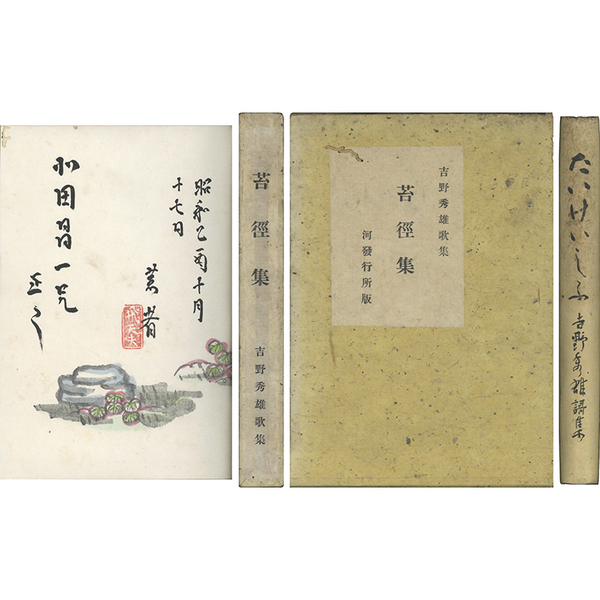 昭和乙酉十月
十七日
著者
苔徑集 吉野秀雄歌集
吉野秀雄歌集
苔徑集
河發行所版
たいけいしふ 吉野秀雄謌集